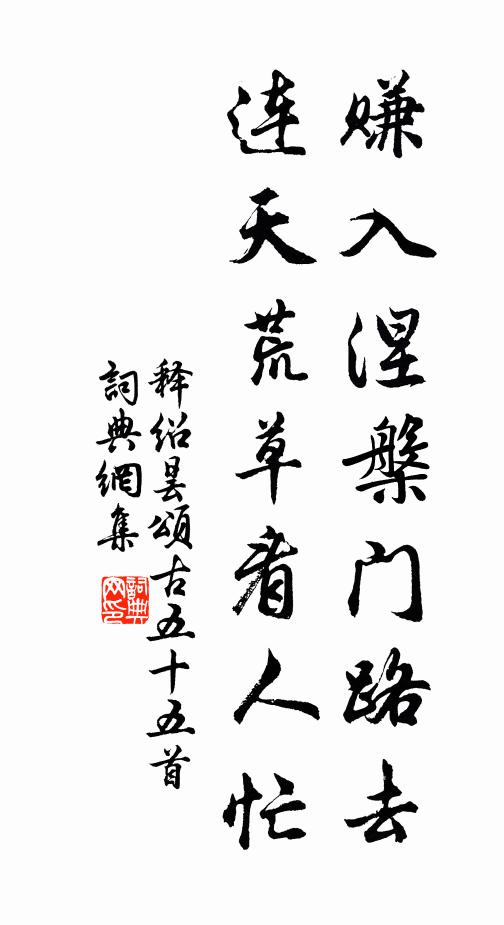 赚入涅槃门路去
连天荒草着人忙
释绍昙颂古五十五首
詞典網集
詞典网印